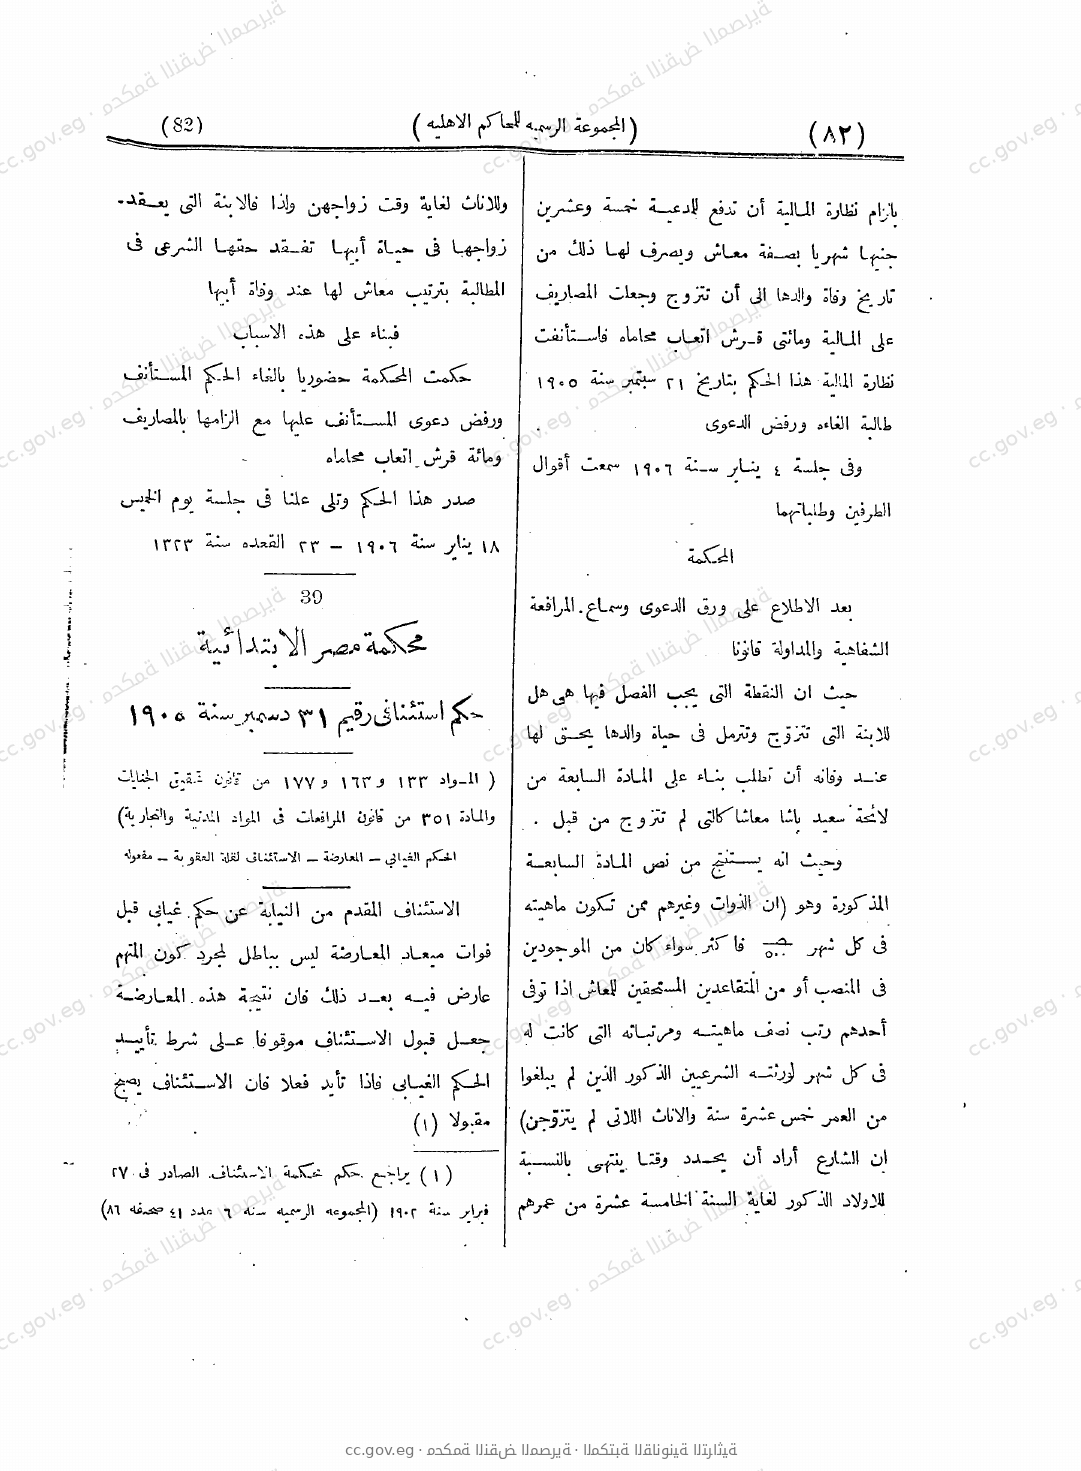 (٨٢)
(المجموعة الرسميه للمحاكم الاهليه)
(82)
بالزام نظارة المالية أن تدفع للمدعيـة خمسة وعشرين
جنيها شهريا بصـفة معـاش ويصرف لهـا ذلك من
تاريخ وفاة والدها الى أن تتزوج وجعلت المصاريف
على المـالية ومائتى قـرش اتعـاب محاماه فاسـتأنفت
نظارة المالية هذا الحكم بتاريخ ٢١ سبتمبر سنة ١٩٠٥
طالبة الغاءه ورفض الدعوى
وفى جلسة ٤ يناير سـنة ١٩٠٦ سمعت أقوال
الطرفين وطلباتهما
المحكمة
بعد الاطلاع على ورق الدعوى وسمـاع المرافعة
الشفاهية والمداولة قانونا
حيث ان النقطة التى يجب الفصل فيها هى هل
للابنة التى تتزوّج وتترمل فى حياة والدها يحـق لها
عنـد وفاته أن تطلب بناء على المادة السابعة من
لائحة سعيد باشا معاشا كالتى لم تتزوج من قبل .
وحيث انه يسـتنتج من نص المادة السابعـة
المذكورة وهو (ان الذوات وغيرهم ممن تكون ماهيته
فى كل شهر فاكثر سواء كان من الموجودين
فى المنصب أو من المتقاعدين المستحقين للمعاش اذا توفى
أحدهم رتب نصف ماهيتـه ومرتباته التى كانت له
فى كل شهر لورثتـه الشرعيين الذكور الذين لم يبلغوا
من العمر خمس عشرة سنة والاناث اللاتى لم يتزوّجن)
ان الشارع أراد أن يحـدد وقتا ينتهى بالنسـبة
للاولاد الذكور لغاية السنة الخامسة عشرة من عمرهم
وللاناث لغاية وقت زواجهن ولذا فالابنة التى يعـقد
زواجهـا فى حيـاة أبيهـا تفـقد حقهـا الشرعى فى
المطالبة بترتيب معاش لها عند وفاة أبيها
فبناء على هذه الاسباب
حكمت المحكمة حضوريا بالغاء الحكم المستأنف
ورفض دعوى المسـتأنف عليها مع الزامها بالمصاريف
ومائة قرش اتعاب محاماه
صدر هذا الحكم وتلى علنا فى جلسة يوم الخميس
١٨ يناير سنة ١٩٠٦ – ٢٣ القعده سنة ١٣٢٣
39
محكمة مصر الابتدائية
حكم استئنافى رقيم ٣١ دسمبر سنة ١٩٠٥
( المـواد ١٣٣ و ١٦٣ و ١٧٧ من قانون تحقيق الجنايات
والمادة ٣٥١ من قانون المرافعات فى المواد المدنية والتجارية)
الحكم الغيابي – المعارضة – الاستئناف لقلة العقوبة – مفعوله
الاستئناف المقدم من النيابة عن حكم غيابى قبل
فوات ميعـاد المعـارضة ليس ببـاطل لمجرد كون المتهم
عارض فيـه بعـد ذلك فان نتيجة هذه المعارضـة
جعـل قبول الاسـتئناف موقوفا عـلى شرط تأييـد
الحكم الغيـابى فاذا تأيد فعلا فان الاسـتئناف يصبح
مقبولا (١)
(١) يراجع حكم محكمة الاستئناف الصادر فى ٢٧
فبراير سنة ١٩٠٢ (المجموعه الرسميه سنه ٦ عدد ٤١ صحيفه ٨٦)
cc.gov.eg · محكمة النقض المصرية · المكتبة القانونية التراثية